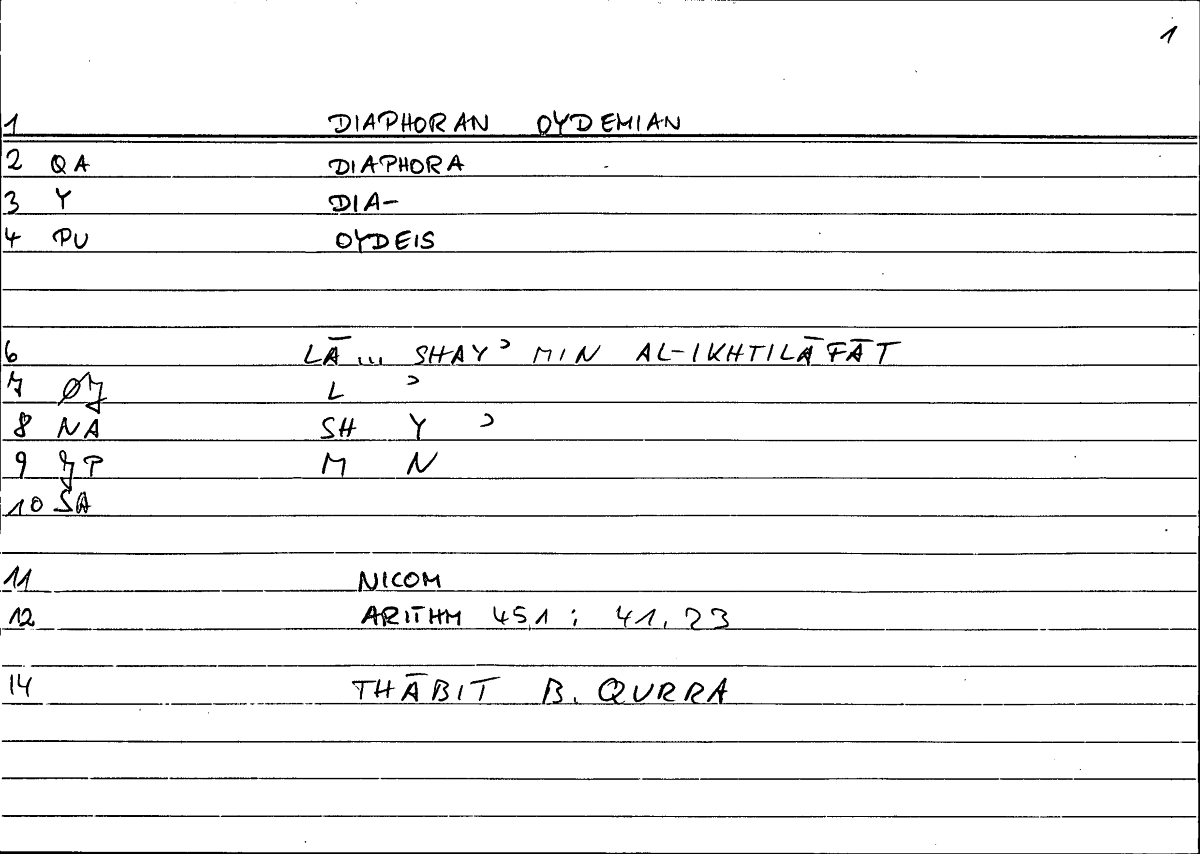 1
1 DIAPHORAN OYDEMIAN
2 QA DIAPHORA
3 Y DIA-
4 PU OYDEIS
6 LĀ... SHAYʾ MIN AL-IKHTILĀFĀT
7 L ʾ
8 NA SH Y ʾ
9 M N
10 SA
11 NICOM
12 ARITHM 451 : 41,23
14 THĀBIT B. QURRA